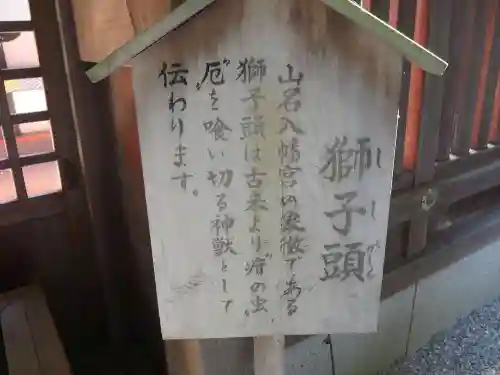 獅子頭
しし がしら
山名八幡宮の象徴である
獅子頭は古来より"疳の虫"
"厄"を喰い切る神獣として
伝わります。